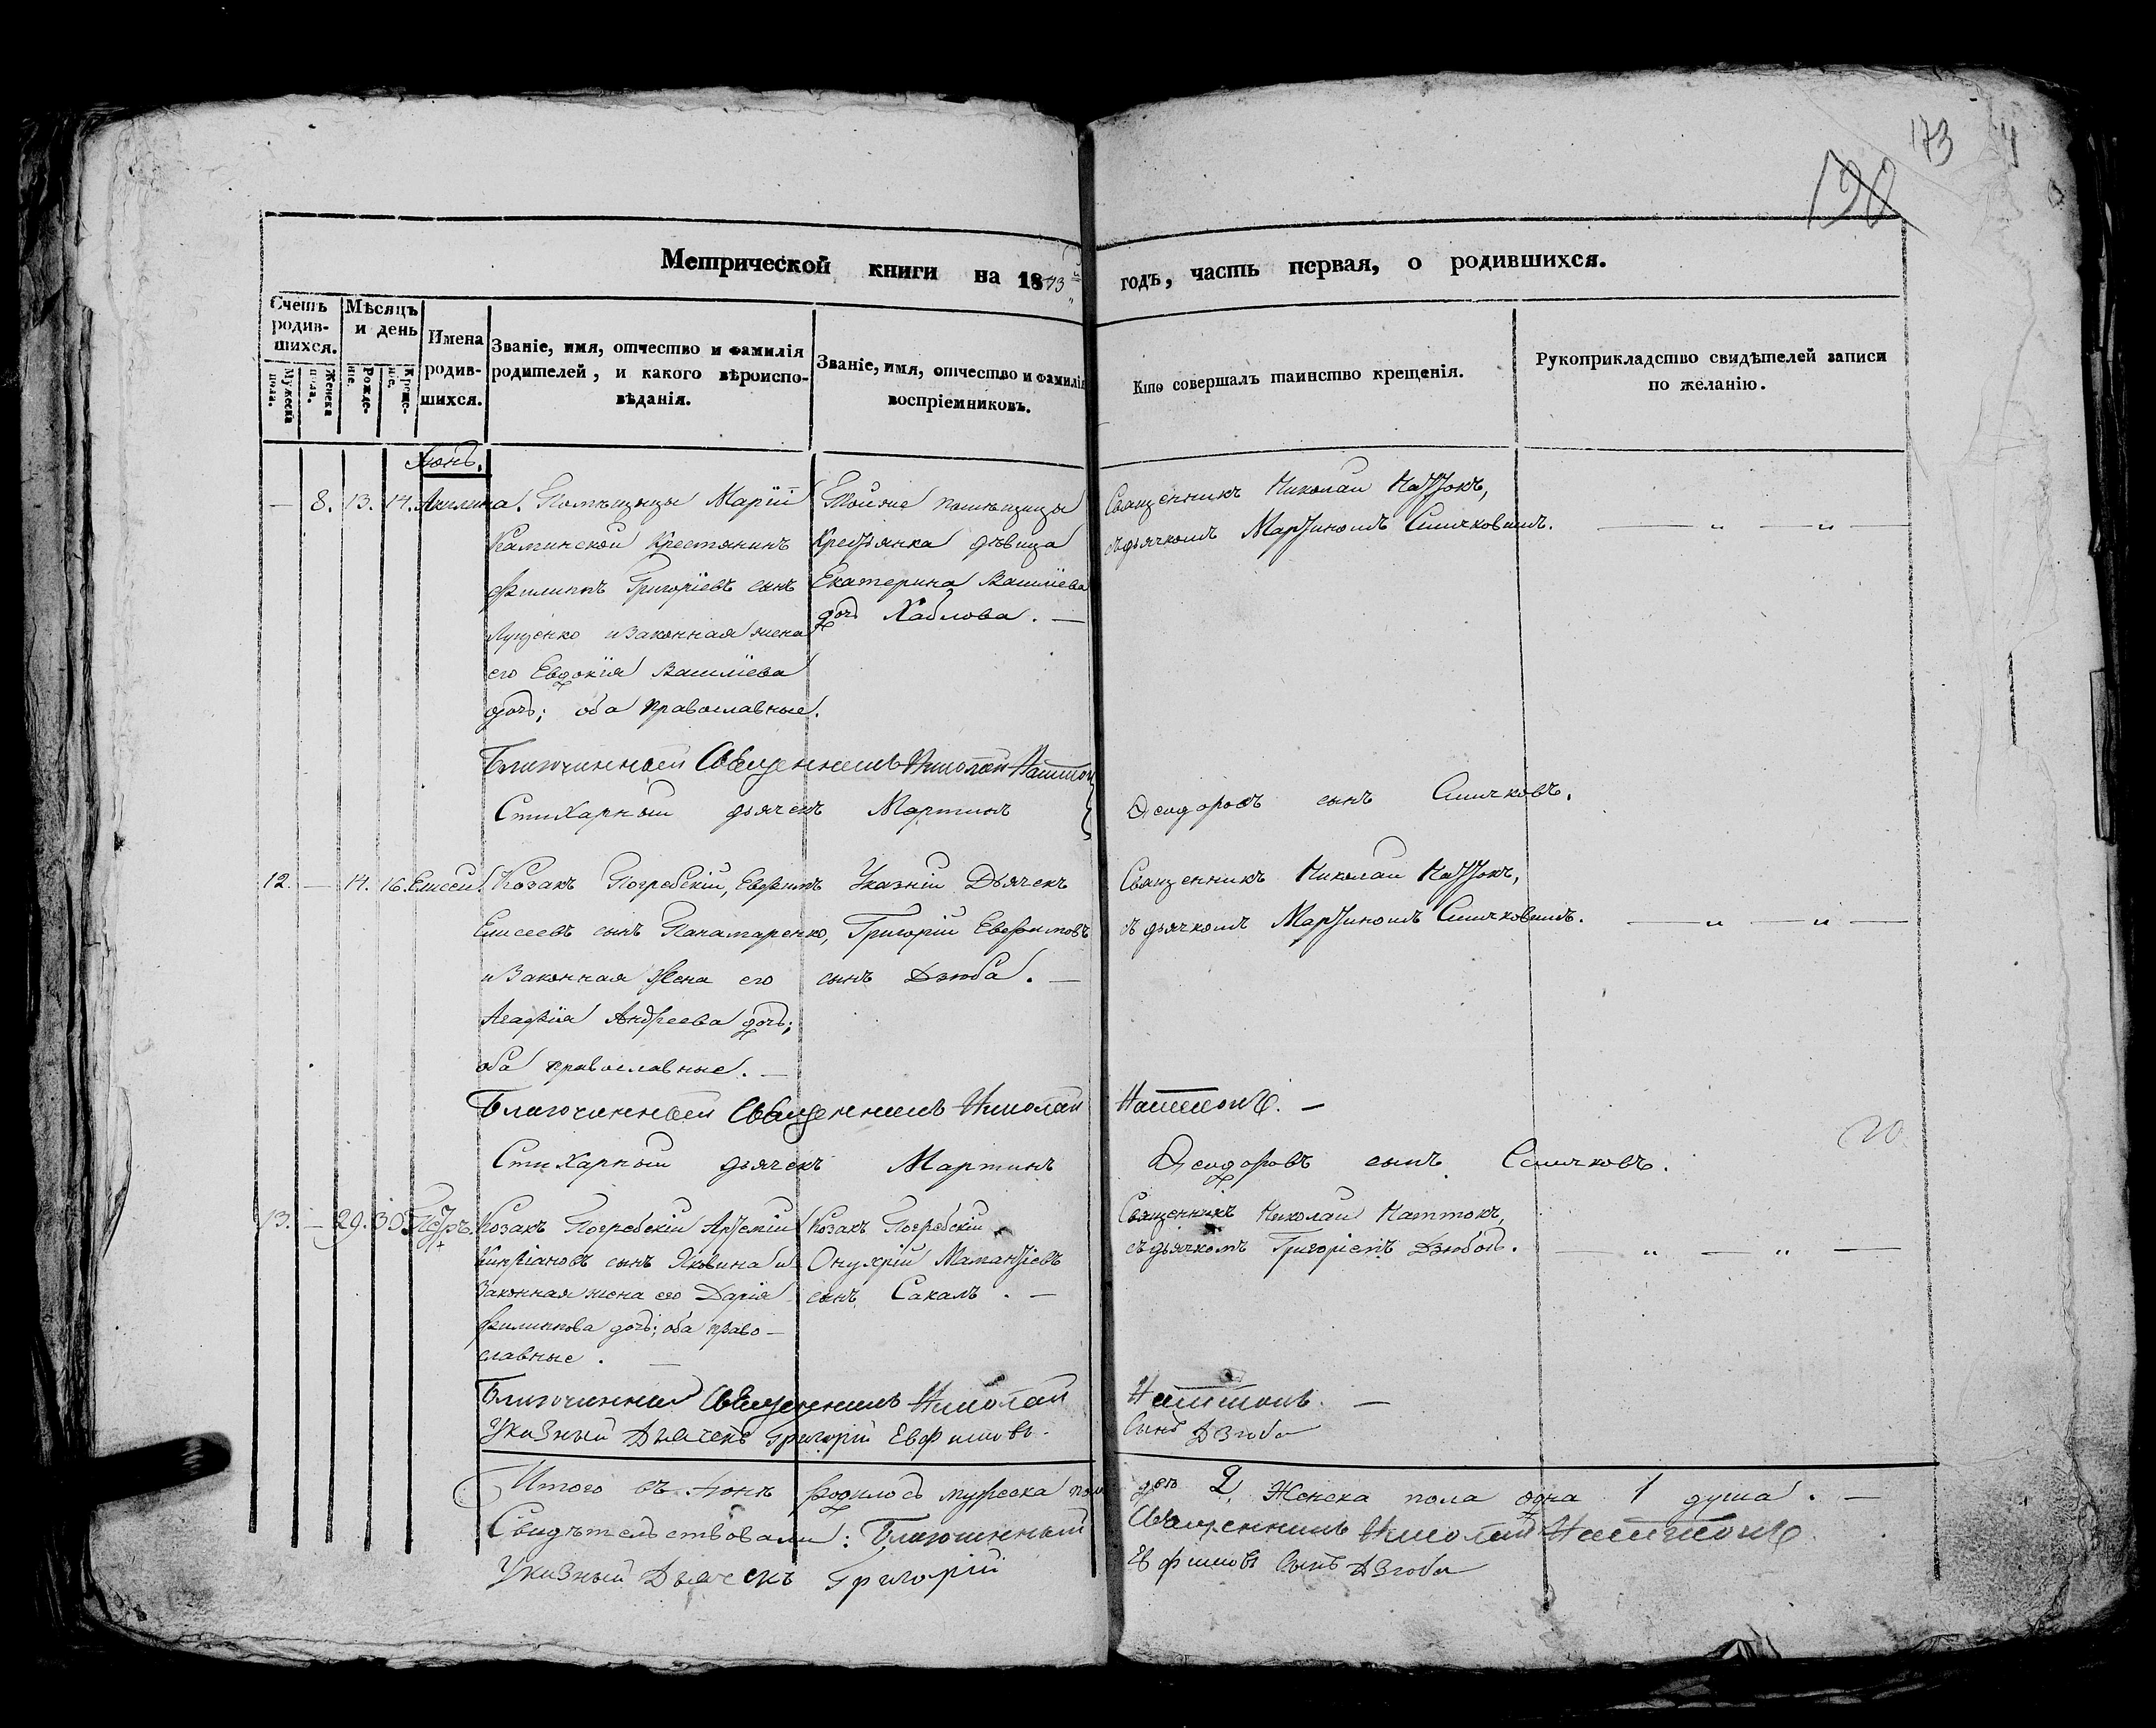 173
190
Метрической книги на 1843 годъ, часть первая, о родившихся.
Счетъ родив-
шихся.
Мужеска пола.
Женска пола.
Мѣсяцъ и день
Рожде-
ніе.
Креще-
ніе.
Имена родив-
шихся.
Званіе, имя, отчество и фамилія
родителей, и какого вѣроиспо-
вѣданія.
Званіе, имя, отчество и фамилія
воспріемниковъ.
Кто совершалъ таинство крещенія.
Рукоприкладство свидѣтелей записи
по желанію.
Іюнь.
— 8. 13. 14. Акилина.
Помѣщицы Маріи
Каминской Крестянинъ
Филиппъ Григоріевъ сынъ
Луценко и Законная жена
его Евдокія Василіева
дочь; оба православные.
Тойже помѣщицы
Крестьянка дѣвица
Екатерина Василіева
дочь Хаблова. —
Священникъ Николай Наттокъ,
съ дьячкомъ Мартиномъ Симчковымъ. — „ — „ —
Благочинный Священникъ Николай Наттокъ
Стихарный дьячекъ Мартинъ Ѳеодоровъ сынъ Симчковъ.
12. — 14. 16. Елисей.
Козакъ Погребскій, Евфимъ
Елисеевъ сынъ Панамаренко,
и Законная Жена его
Агафія Андреева дочь;
оба православные. —
Указній Дьячекъ
Григорій Евфимовъ
сынъ Дзюба. —
Священникъ Николай Наттокъ,
съ дьячкомъ Мартиномъ Симчковымъ. — „ — „ —
Благочинный Священникъ Николай Наттокъ. —
Стихарный дьячекъ Мартинъ Ѳеодоровъ сынъ Симчковъ.
13. — 29. 30. Петръ.
Козакъ Погребскій Артемій
Кипріановъ сынъ Яковина и
Законная жена его Дарія
Филиппова дочь; оба право-
славные. —
Козакъ Погребскій
Онуфрій Мамантіевъ
сынъ Сакалъ. —
Священникъ Николай Наттокъ,
съ дьячкомъ Григоріемъ Дзюбою. — „ — „ —
Благочинный Священникъ Николай Наттокъ. —
Указный Дьячекъ Григорій Евфимовъ Сынъ Дзюба
Итого въ Іюнѣ родилось мужеска пола двѣ 2, Женска пола одна 1 душа. —
Свидѣтельствовали: Благочинный Священникъ Николай Наттокъ
Указный Дьячекъ Григорій Евфимовъ Сынъ Дзюба